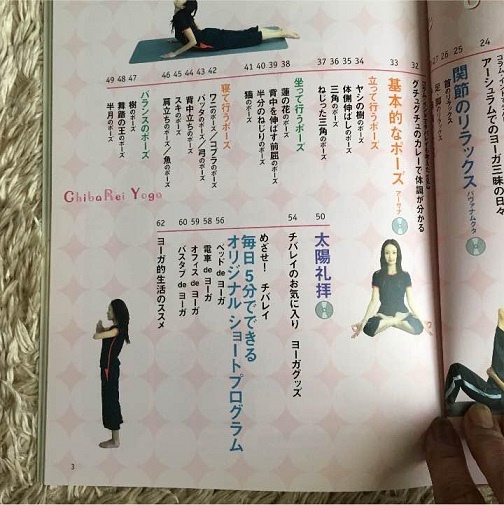 24 アーシュラムでのヨーガ三昧の日々
25 関節のリラックス パヴァナムクタ
32 グチュグチュのカレーで体調が分かる
33 基本的なポーズ アーサナ
立って行うポーズ
34 ヤシの樹のポーズ
35 体側伸ばしのポーズ
36 三角のポーズ
37 ねじった三角のポーズ
坐って行うポーズ
38 蓮の花のポーズ
39 背中を伸ばす前屈のポーズ
40 半分のねじりのポーズ
41 猫のポーズ
寝て行うポーズ
42 ワニのポーズ/コブラのポーズ
43 バッタのポーズ/弓のポーズ
44 背中立ちのポーズ
45 スキのポーズ
46 肩立ちのポーズ/魚のポーズ
バランスのポーズ
47 樹のポーズ
48 舞踏の王のポーズ
49 半月のポーズ
ChibaRei Yoga
50 太陽礼拝
54 チバレイのお気に入り ヨーガグッズ
めざせ! チバレイ
毎日5分でできる
オリジナル ショートプログラム
56 ベッド de ヨーガ
58 電車 de ヨーガ
59 オフィス de ヨーガ
60 バスタブ de ヨーガ
62 ヨーガ的生活のススメ
3